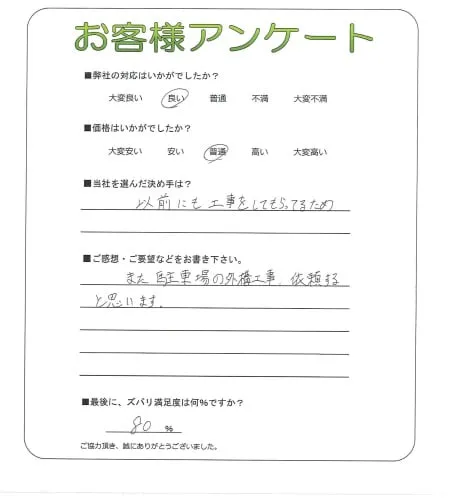 お客様アンケート
■弊社の対応はいかがでしたか？
大変良い 良い 普通 不満 大変不満
■価格はいかがでしたか？
大変安い 安い 普通 高い 大変高い
■当社を選んだ決め手は？
以前にも工事をしてもらってるため
■ご感想・ご要望などをお書き下さい。
また駐車場の外構工事、依頼する
と思います。
■最後に、ズバリ満足度は何％ですか？
80 ％
ご協力頂き、誠にありがとうございました。